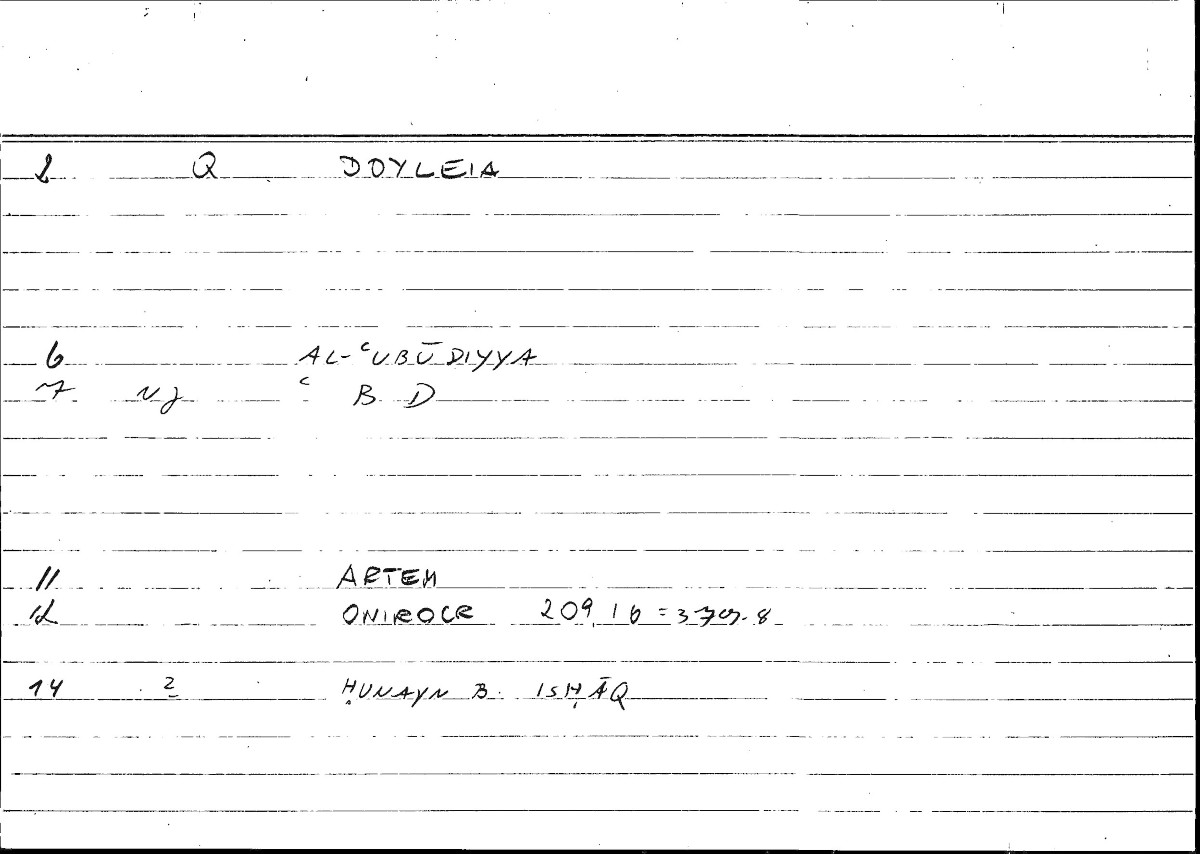 2 Q DOYLEIA
6 AL-ʿUBŪDIYYA
7 NJ ʿ B D
11 ARTEM
12 ONIROCR 209,16 = 8
14 2 ḤUNAYN B. ISḤĀQ